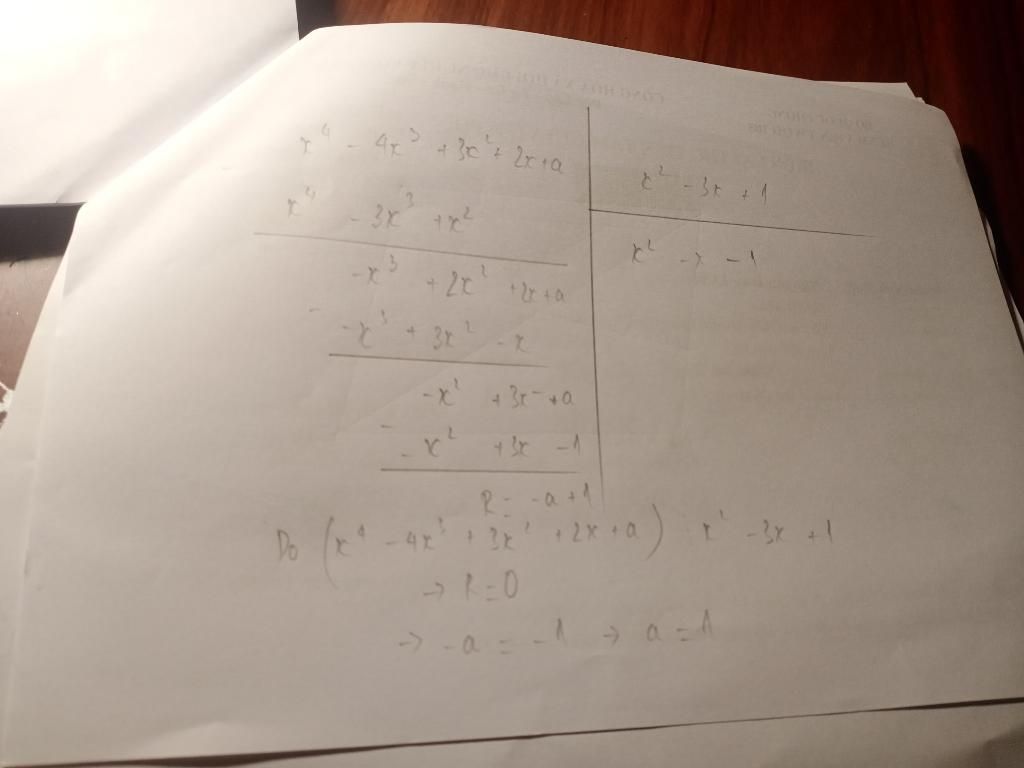 x⁴ - 4x³ + 3x² + 2x + a
x² - 3x + 1
x⁴ - 3x³ + x²
x² - x - 1
-x³ + 2x² + 2x + a
-
-x³ + 3x² - x
-x² + 3x + a
-
-x² + 3x - 1
R = -a + 1
Do (x⁴ - 4x³ + 3x² + 2x + a) x² - 3x + 1
→ R = 0
→ -a = -1 → a = 1